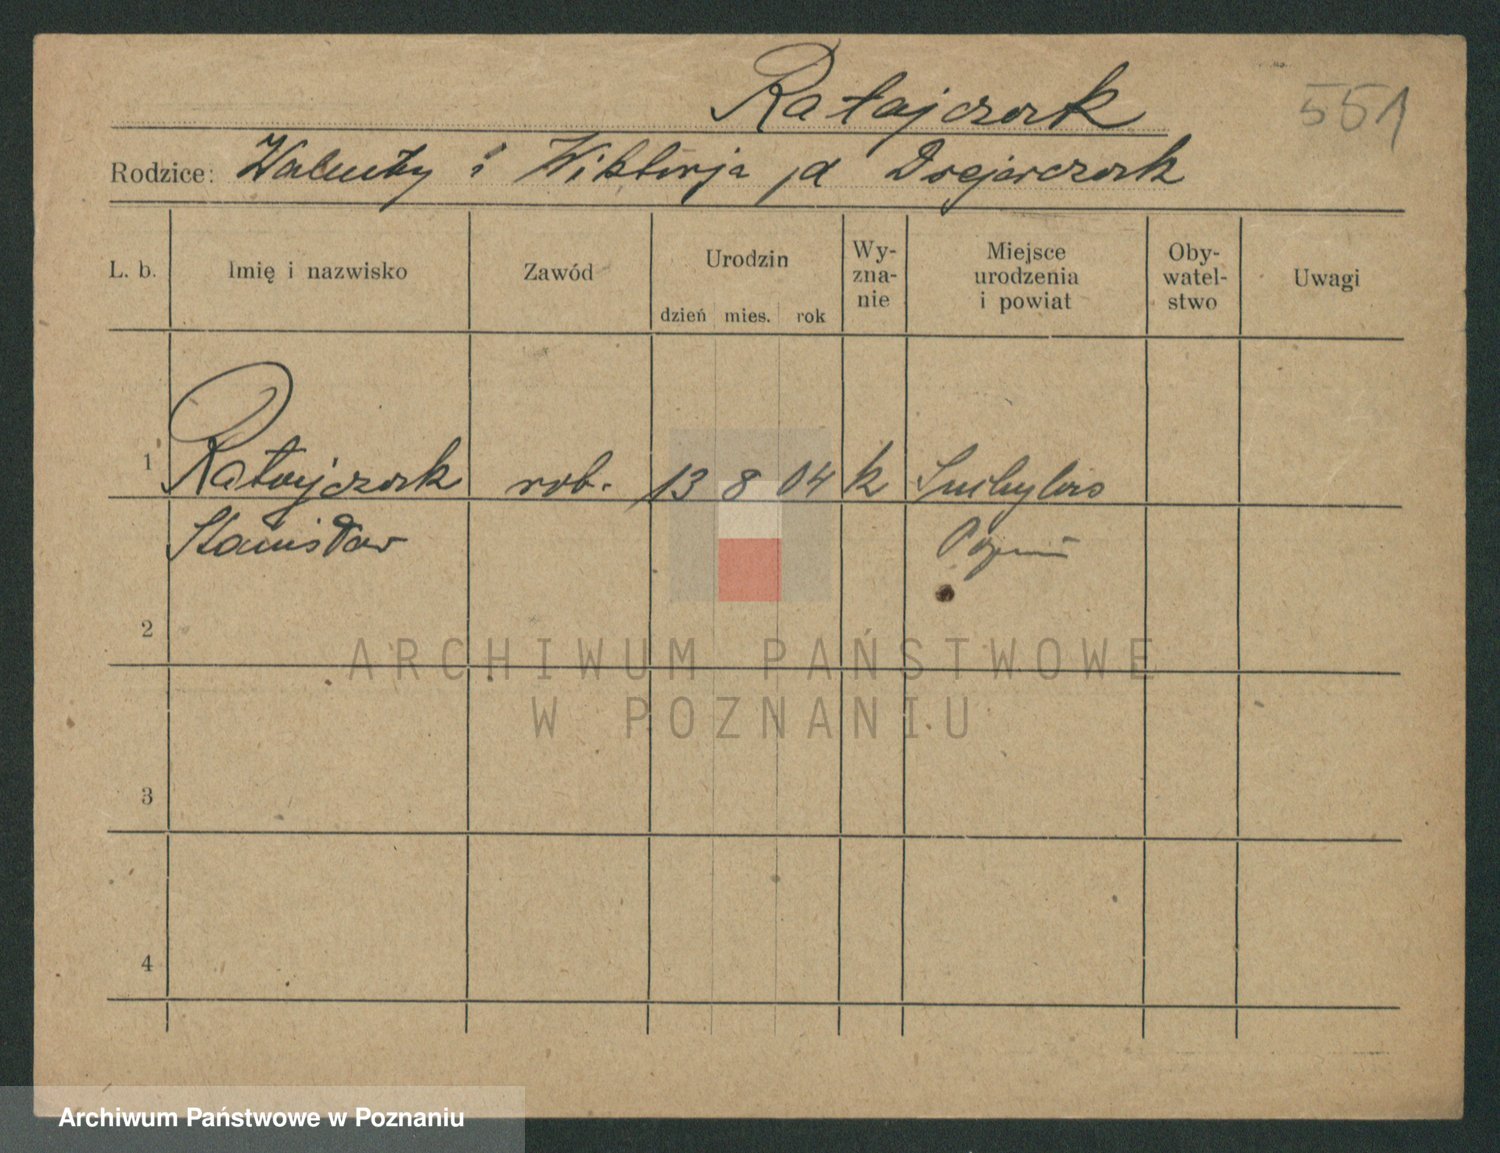 Ratajczak
551
Rodzice: Walenty i Wiktorja d
L. b. Imię i nazwisko Zawód Urodzin Wy-zna-nie Miejsce urodzenia i powiat Oby-watel-stwo Uwagi
dzień mies. rok
1 Ratajczak rob. 13 8 04 k
Stanisław
2
3
4
ARCHIWUM PAŃSTWOWE
W POZNANIU
Archiwum Państwowe w Poznaniu